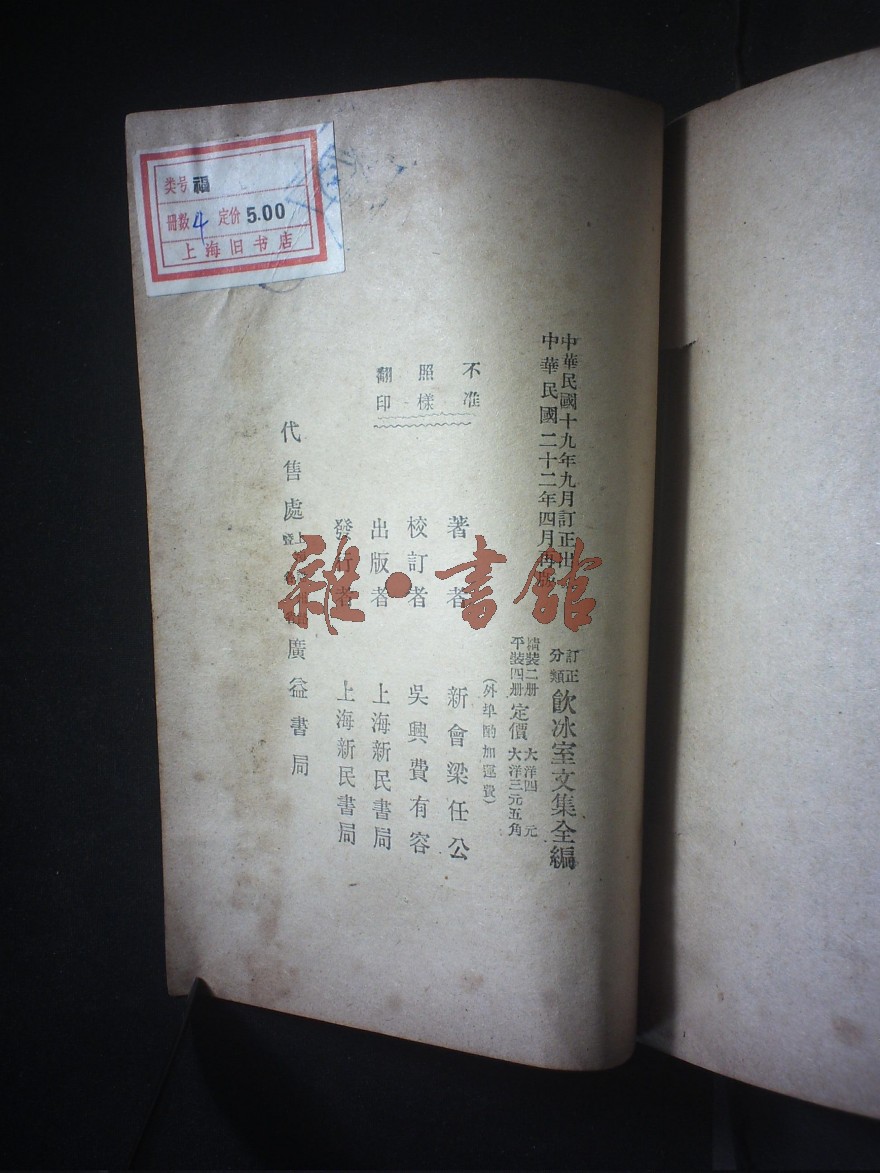 中華民國十九年九月訂正出
中華民國二十二年四月再版
訂正
分類
飲冰室文集全編
精裝二册
平裝四册
定價
大洋四元
大洋三元五角
(外埠酌加運費)
著者 新會梁任公
校訂者 吳興費有容
出版者 上海新民書局
發行者 上海新民書局
代售處
廣益書局
不准
照樣
翻印
类号 福
册数 4 定价 5.00
上海旧书店
雜·書館